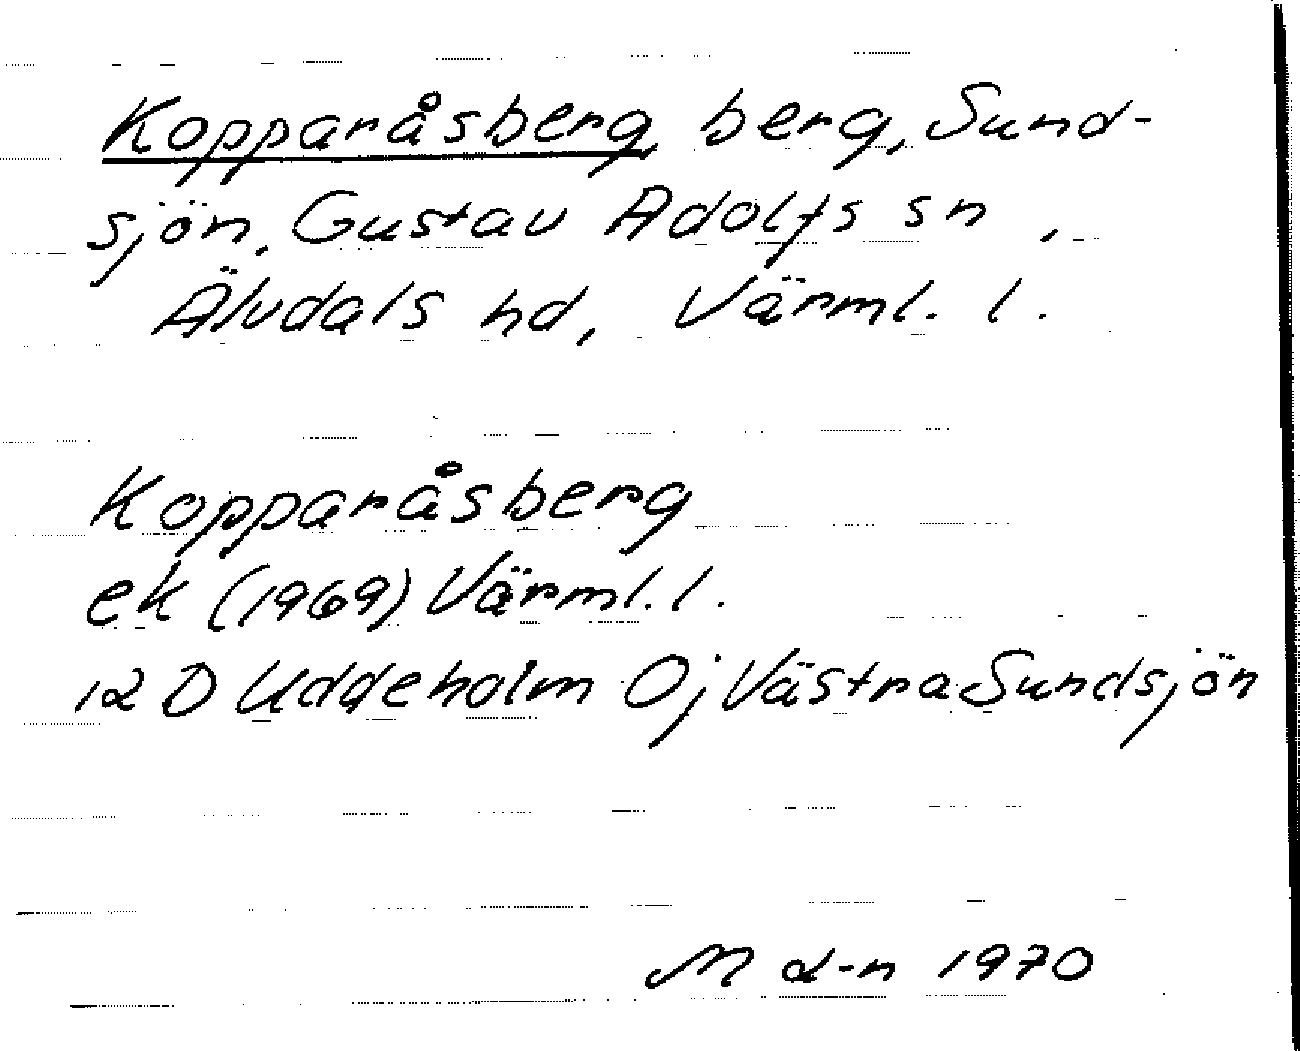 Kopparåsberg, berg, Sund-
sjön, Gustav Adolfs sn,
Älvdals hd, Värml. l.
Kopparåsberg
ek (1969) Värml. l.
12 D Uddeholm 0j Västra Sundsjön
M d-n 1970